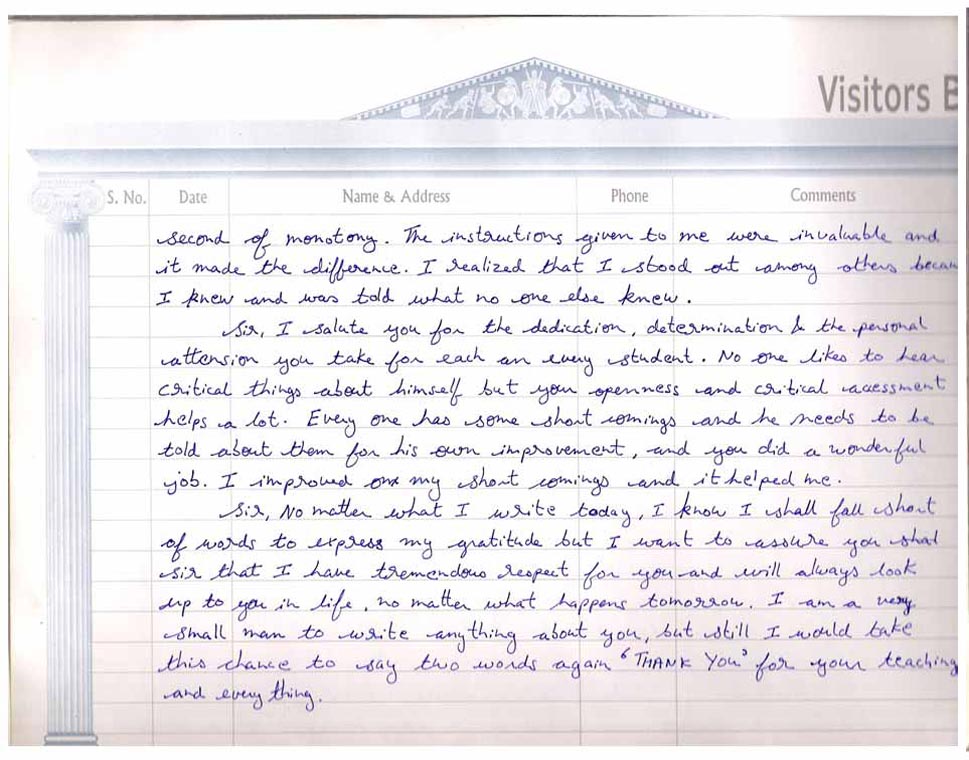 Visitors B
S. No. Date Name & Address Phone Comments
second of monotony. The instructions given to me were invaluable and
it made the difference. I realized that I stood out among others becau
I knew and was told what no one else knew.
Sir, I salute you for the dedication, determination & the personal
attension you take for each an every student. No one likes to hear
critical things about himself but your openness and critical accessment
helps a lot. Every one has some short comings and he needs to be
told about them for his own improvement, and you did a wonderful
job. I improved on my short comings and it helped me.
Sir, No matter what I write today, I know I shall fall short
of words to express my gratitude but I want to assure you
sir that I have tremendous respect for you and will always look
up to you in life, no matter what happens tomorrow. I am a very
small man to write anything about you, but still I would take
this chance to say two words again "THANK YOU" for your teaching
and every thing.